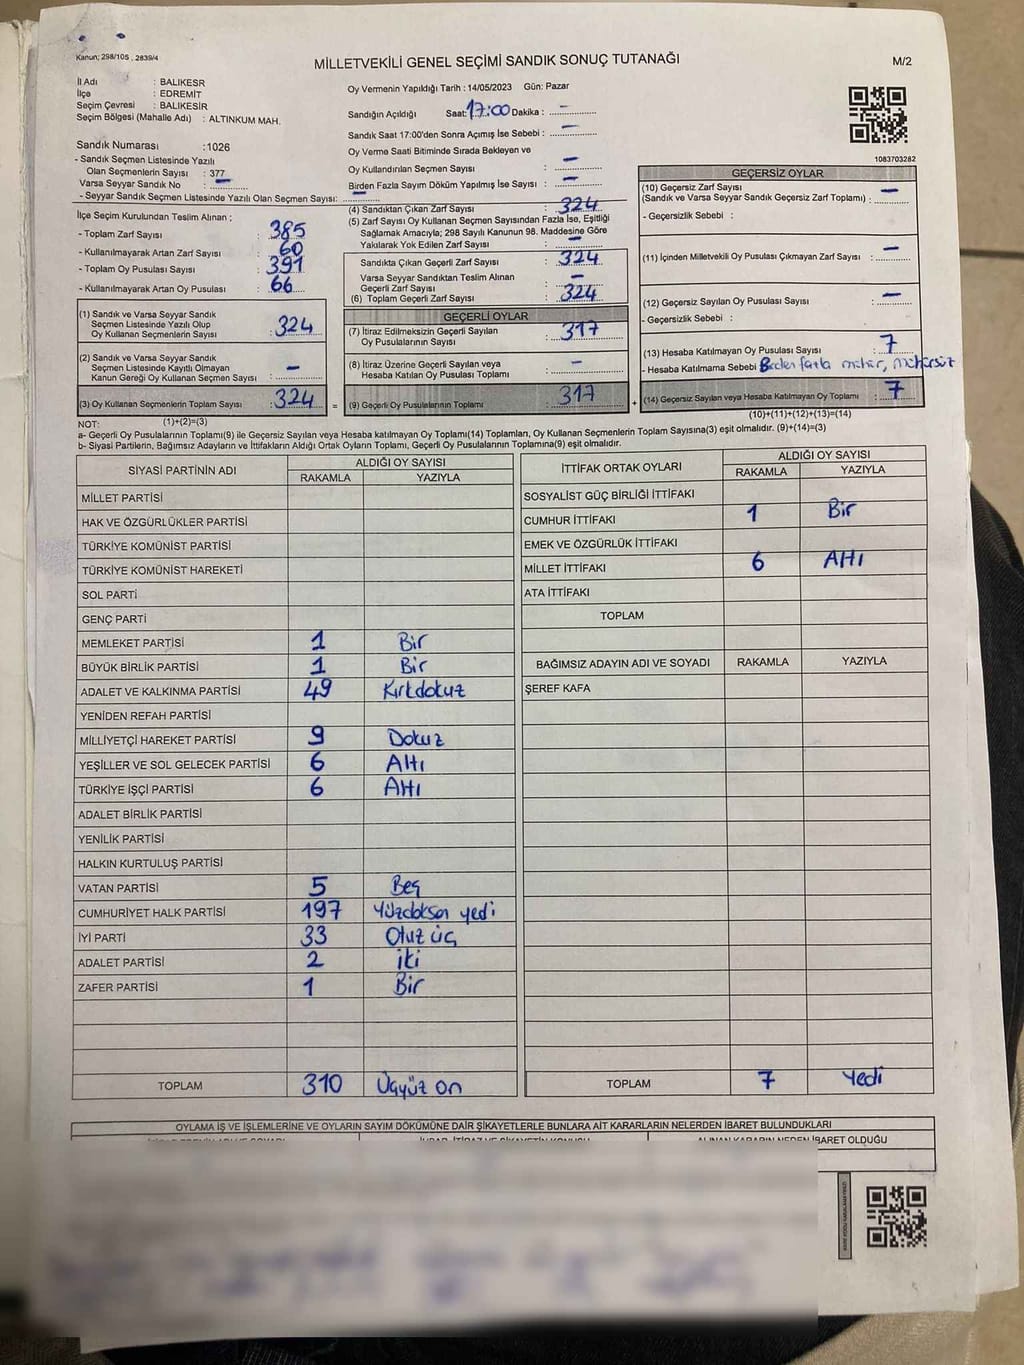 Kanun; 298/105 , 2839/4
MİLLETVEKİLİ GENEL SEÇİMİ SANDIK SONUÇ TUTANAĞI
M/2
İl Adı : BALIKESR
İlçe : EDREMIT
Seçim Çevresi : BALIKESİR
Seçim Bölgesi (Mahalle Adı) : ALTINKUM MAH.
Sandık Numarası :1026
- Sandık Seçmen Listesinde Yazılı
Olan Seçmenlerin Sayısı : 377
Varsa Seyyar Sandık No : –
- Seyyar Sandık Seçmen Listesinde Yazılı Olan Seçmen Sayısı: –
Oy Vermenin Yapıldığı Tarih : 14/05/2023 Gün: Pazar
Sandığın Açıldığı Saat: 17:00 Dakika : –
Sandık Saat 17:00'den Sonra Açımış İse Sebebi : –
Oy Verme Saati Bitiminde Sırada Bekleyen ve
Oy Kullandırılan Seçmen Sayısı : –
Birden Fazla Sayım Döküm Yapılmış İse Sayısı : –
1083703282
İlçe Seçim Kurulundan Teslim Alınan ;
- Toplam Zarf Sayısı : 385
- Kullanılmayarak Artan Zarf Sayısı : 60
- Toplam Oy Pusulası Sayısı : 391
- Kullanılmayarak Artan Oy Pusulası : 66
(1) Sandık ve Varsa Seyyar Sandık
Seçmen Listesinde Yazılı Olup
Oy Kullanan Seçmenlerin Sayısı : 324
(2) Sandık ve Varsa Seyyar Sandık
Seçmen Listesinde Kayıtlı Olmayan
Kanun Gereği Oy Kullanan Seçmen Sayısı : –
(3) Oy Kullanan Seçmenlerin Toplam Sayısı : 324
(1)+(2)=(3)
(4) Sandıktan Çıkan Zarf Sayısı : 324
(5) Zarf Sayısı Oy Kullanan Seçmen Sayısından Fazla İse, Eşitliği
Sağlamak Amacıyla; 298 Sayılı Kanunun 98. Maddesine Göre
Yakılarak Yok Edilen Zarf Sayısı : –
Sandıkta Çıkan Geçerli Zarf Sayısı : 324
Varsa Seyyar Sandıktan Teslim Alınan
Geçerli Zarf Sayısı : –
(6) Toplam Geçerli Zarf Sayısı : 324
GEÇERLİ OYLAR
(7) İtiraz Edilmeksizin Geçerli Sayılan
Oy Pusulalarının Sayısı : 317
(8) İtiraz Üzerine Geçerli Sayılan veya
Hesaba Katılan Oy Pusulası Toplamı : –
= (9) Geçerli Oy Pusulalarının Toplamı : 317 +
GEÇERSİZ OYLAR
(10) Geçersiz Zarf Sayısı
(Sandık ve Varsa Seyyar Sandık Geçersiz Zarf Toplamı) : –
- Geçersizlik Sebebi :
(11) İçinden Milletvekili Oy Pusulası Çıkmayan Zarf Sayısı : –
(12) Geçersiz Sayılan Oy Pusulası Sayısı : –
- Geçersizlik Sebebi :
(13) Hesaba Katılmayan Oy Pusulası Sayısı : 7
- Hesaba Katılmama Sebebi : Birden fazla mühür, mühürsüz
(14) Geçersiz Sayılan veya Hesaba Katılmayan Oy Toplamı : 7
(10)+(11)+(12)+(13)=(14)
NOT:
a- Geçerli Oy Pusulalarının Toplamı(9) ile Geçersiz Sayılan veya Hesaba katılmayan Oy Toplamı(14) Toplamları, Oy Kullanan Seçmenlerin Toplam Sayısına(3) eşit olmalıdır. (9)+(14)=(3)
b- Siyasi Partilerin, Bağımsız Adayların ve İttifakların Aldığı Ortak Oyların Toplamı, Geçerli Oy Pusulalarının Toplamına(9) eşit olmalıdır.
SİYASİ PARTİNİN ADI ALDIĞI OY SAYISI
RAKAMLA YAZIYLA
MİLLET PARTİSİ
HAK VE ÖZGÜRLÜKLER PARTİSİ
TÜRKİYE KOMÜNİST PARTİSİ
TÜRKİYE KOMÜNİST HAREKETİ
SOL PARTİ
GENÇ PARTİ
MEMLEKET PARTİSİ 1 Bir
BÜYÜK BİRLİK PARTİSİ 1 Bir
ADALET VE KALKINMA PARTİSİ 49 Kırkdokuz
YENİDEN REFAH PARTİSİ
MİLLİYETÇİ HAREKET PARTİSİ 9 Dokuz
YEŞİLLER VE SOL GELECEK PARTİSİ 6 Altı
TÜRKİYE İŞÇİ PARTİSİ 6 Altı
ADALET BİRLİK PARTİSİ
YENİLİK PARTİSİ
HALKIN KURTULUŞ PARTİSİ
VATAN PARTİSİ 5 Beş
CUMHURİYET HALK PARTİSİ 197 Yüzdoksan yedi
İYİ PARTİ 33 Otuz üç
ADALET PARTİSİ 2 İki
ZAFER PARTİSİ 1 Bir
TOPLAM 310 Üçyüz on
İTTİFAK ORTAK OYLARI ALDIĞI OY SAYISI
RAKAMLA YAZIYLA
SOSYALİST GÜÇ BİRLİĞİ İTTİFAKI
CUMHUR İTTİFAKI 1 Bir
EMEK VE ÖZGÜRLÜK İTTİFAKI
MİLLET İTTİFAKI 6 Altı
ATA İTTİFAKI
TOPLAM
BAĞIMSIZ ADAYIN ADI VE SOYADI RAKAMLA YAZIYLA
ŞEREF KAFA
TOPLAM 7 Yedi
OYLAMA İŞ VE İŞLEMLERİNE VE OYLARIN SAYIM DÖKÜMÜNE DAİR ŞİKAYETLERLE BUNLARA AİT KARARLARIN NELERDEN İBARET BULUNDUKLARI
İTİRAZ VE ŞİKAYETİN KONUSU ALINAN KARARIN NEDEN İBARET OLDUĞU